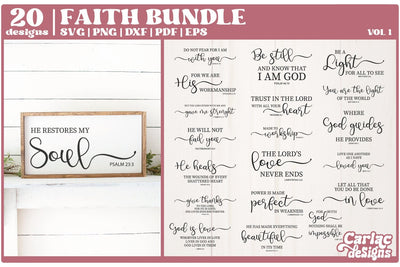 20
designs
FAITH BUNDLE
SVG | PNG | DXF | PDF | EPS
VOL 1
HE RESTORES MY
Soul
PSALM 23:3
DO NOT FEAR FOR I AM
with you
His
FOR WE ARE
WORKMANSHIP
give me strength
HE WILL NOT
fail you
He heals
THE WOUNDS OF EVERY
SHATTERED HEART
give thanks
God is love
WHOEVER LIVES IN LOVE
LIVES IN GOD
AND GOD LIVES IN THEM
Be still
AND KNOW THAT
I AM GOD
TRUST IN THE LORD
WITH ALL YOUR heart
MADE TO
worship
THE LORD'S
love
NEVER ENDS
POWER IS MADE
perfect
IN WEAKNESS
HE HAS MADE EVERYTHING
beautiful
IN ITS TIME
BE A
Light
FOR ALL TO SEE
You are the light
OF THE WORLD
WHERE
God
guides
HE PROVIDES
LOVE ONE ANOTHER
AS I HAVE
loved you
LET ALL THAT
YOU DO BE DONE
in love
FOR WITH
God
NOTHING SHALL BE
impossible
Carlac
designs